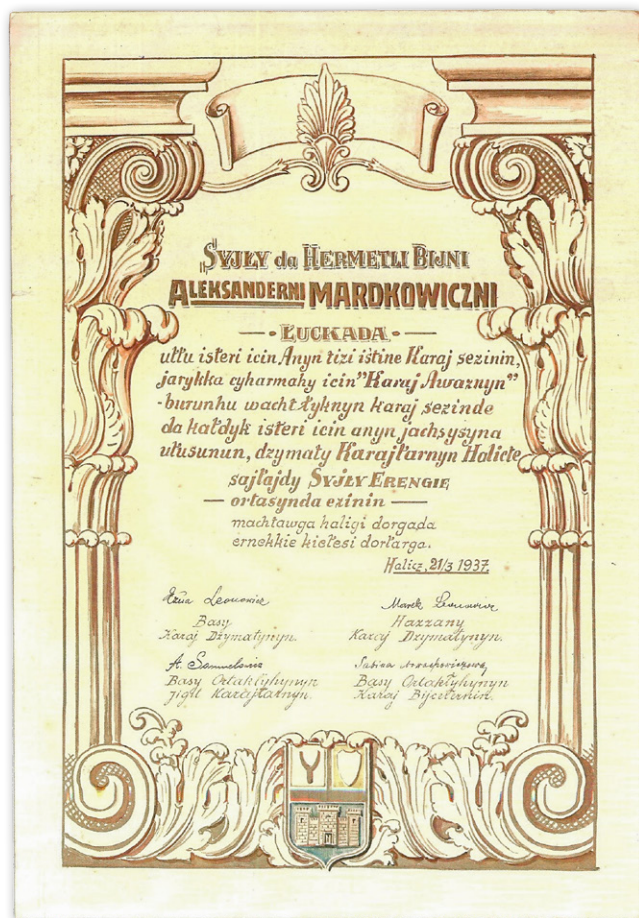 „SYJŁY da HERMETLI BIJNI
ALEKSANDERNI MARDKOWICZNI
— • ŁUCKADA • —
ułłu isteri icin Anyn tizi istine Karaj sezinin,
jarykka cyharmahy icin "Karaj Awaznyn"
-burunhu wachtłyknyn karaj sezinde
da kałdyk isteri icin anyn jachsysyna
ułusunun, dzymaty Karajłarnyn Halicte
sajłajdy SYJŁY ERENGIE
— ortasynda ezinin —
machtawga haligi dorgada
ernekkie kiełesi dorłarga.
Halicz, 21/3 1937.
Leonowicz
Marek Leonowicz
Basy
Karaj Dzymatynyn.
Hazzany
Karaj Dzymatynyn.
A. Samuelowicz
Sabina
Basy Ortakłyhynyn
jigit Karajłarnyn.
Basy Ortakłyhynyn
Karaj